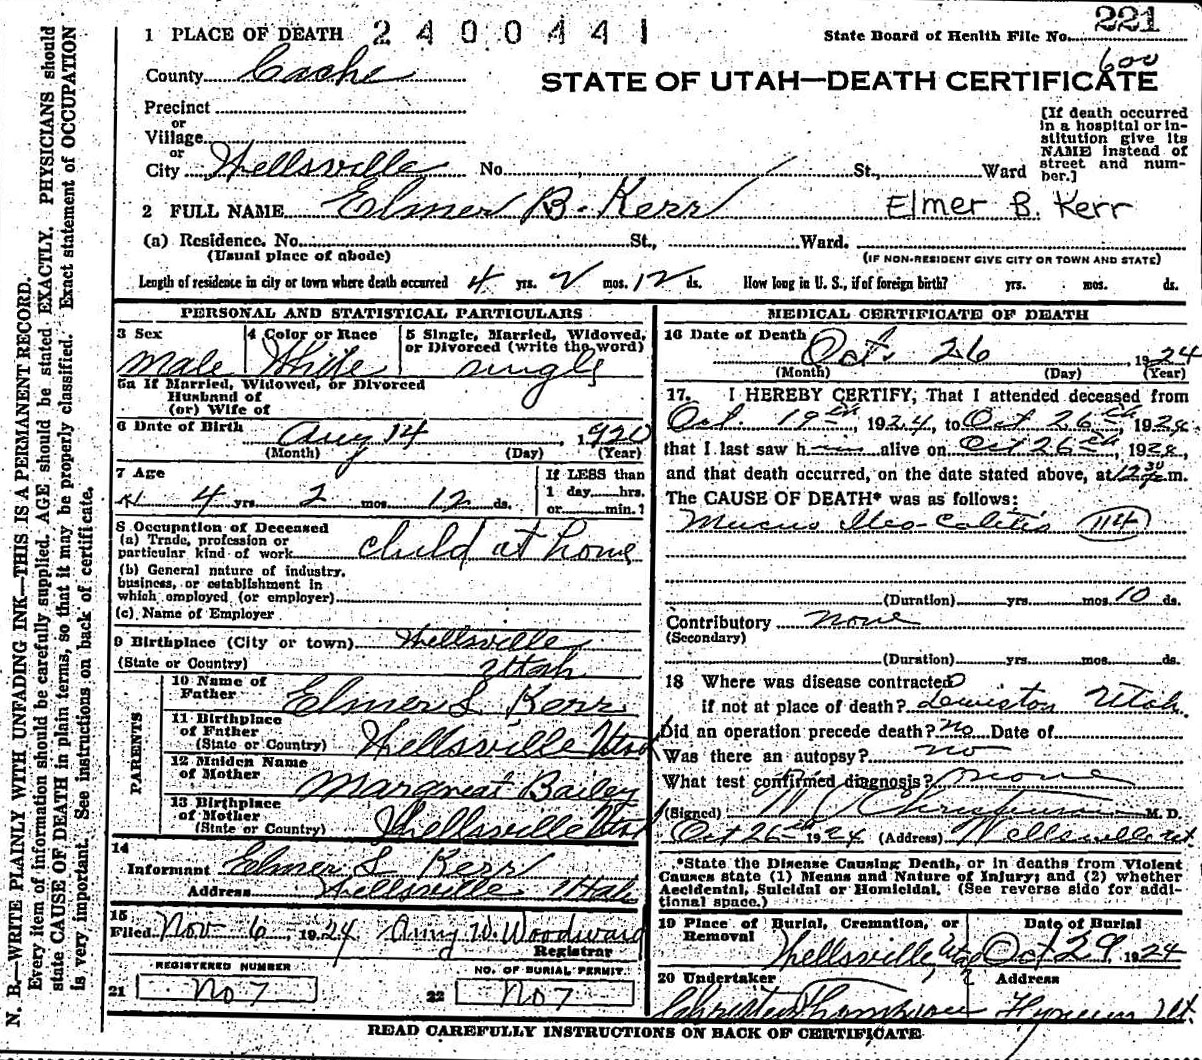 221
1 PLACE OF DEATH 2400441 State Board of Health File No.
600
County Cache STATE OF UTAH—DEATH CERTIFICATE
Precinct
or
Village
or
City Wellsville No. St., Ward
[If death occurred
in a hospital or in-
stitution give its
NAME instead of
street and num-
ber.]
2 FULL NAME Elmer B. Kerr Elmer B. Kerr
(a) Residence. No. St., Ward.
(Usual place of abode) (IF NON-RESIDENT GIVE CITY OR TOWN AND STATE)
Length of residence in city or town where death occurred 4 yrs. 2 mos. 12 ds. How long in U. S., if of foreign birth? yrs. mos. ds.
PERSONAL AND STATISTICAL PARTICULARS
3 Sex 4 Color or Race 5 Single, Married, Widowed,
or Divorced (write the word)
male White single
5a If Married, Widowed, or Divorced
Husband of
(or) Wife of
6 Date of Birth Aug 14 1920
(Month) (Day) (Year)
7 Age 4 yrs. 2 mos. 12 ds.
If LESS than
1 day hrs.
or min.?
8 Occupation of Deceased
(a) Trade, profession or
particular kind of work child at home
(b) General nature of industry,
business, or establishment in
which employed (or employer)
(c) Name of Employer
9 Birthplace (City or town) Wellsville
(State or Country) Utah
PARENTS
10 Name of
Father Elmer L Kerr
11 Birthplace
of Father
(State or Country) Wellsville Utah
12 Maiden Name
of Mother Margreat Bailey
13 Birthplace
of Mother
(State or Country) Wellsville Utah
14
Informant Elmer L Kerr
Address Wellsville Utah
15
Filed Nov 6, 1924 Amy W. Woodward
Registrar
REGISTERED NUMBER NO. OF BURIAL PERMIT
21 No 7 22 No 7
MEDICAL CERTIFICATE OF DEATH
16 Date of Death Oct. 26 1924
(Month) (Day) (Year)
17. I HEREBY CERTIFY, That I attended deceased from
Oct. 19th, 1924, to Oct 26th, 1924,
that I last saw h alive on Oct 26th, 1924,
and that death occurred, on the date stated above, at 12 30 m.
The CAUSE OF DEATH* was as follows:
Mucus Ileo-Colitis 114
(Duration) yrs. mos. 10 ds.
Contributory none
(Secondary)
(Duration) yrs. mos. ds.
18 Where was disease contracted
if not at place of death? Lewiston Utah.
Did an operation precede death? no Date of
Was there an autopsy? no
What test confirmed diagnosis? none
(Signed) M. D.
Oct 26th 1924 (Address) Wellsville Ut.
*State the Disease Causing Death, or in deaths from Violent
Causes state (1) Means and Nature of Injury; and (2) whether
Accidental, Suicidal or Homicidal. (See reverse side for addi-
tional space.)
19 Place of Burial, Cremation, or Date of Burial
Removal Wellsville, Utah Oct 29, 1924
20 Undertaker Address
Hyrum Ut.
READ CAREFULLY INSTRUCTIONS ON BACK OF CERTIFICATE
N. B.—WRITE PLAINLY WITH UNFADING INK—THIS IS A PERMANENT RECORD.
Every item of information should be carefully supplied. AGE should be stated EXACTLY. PHYSICIANS should
state CAUSE OF DEATH in plain terms, so that it may be properly classified. Exact statement of OCCUPATION
is very important. See instructions on back of certificate.